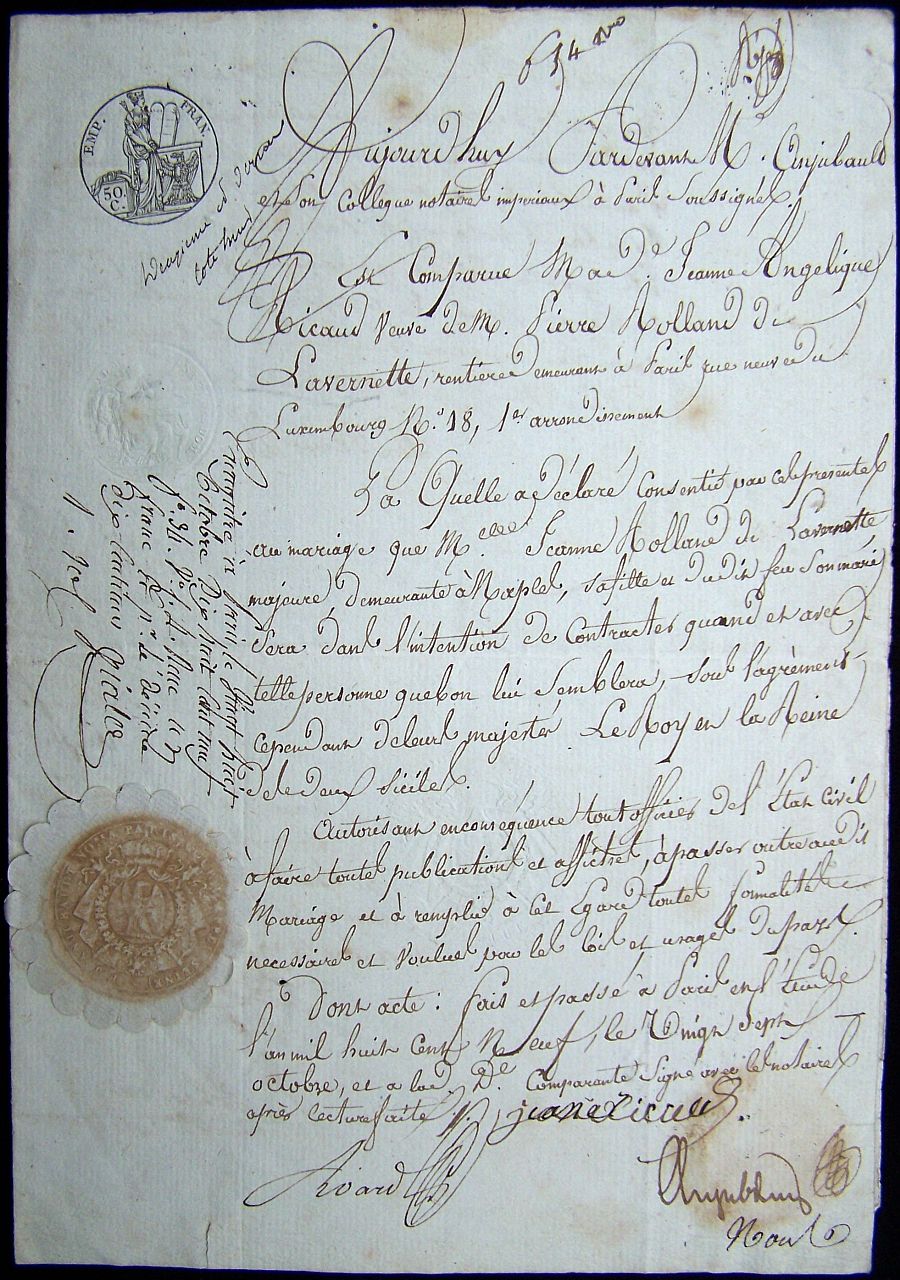 EMP. FRAN.
50. C.
Aujourd'huy Pardevant Me. Anjubault
et son Collegue notaires imperiaux à Paris Soussignés.
Est Comparue Made. Jeanne Angelique
Ricaud Veuve de M. Pierre Rolland de
Lavernette, rentiere demeurant à Paris rue neuve du
Luxembourg No. 18, 1er arrondissement
La Quelle a Déclaré Consentir par ces presentes
au mariage que Melle Jeanne Rolland de Lavernette
majeure, demeurante à Naples, sa fille et dudit feu Son mari
Sera dans l'intention de Contracter quand et avec
telle personne que bon lui Semblera, sous l'agrèment
cependant de leurs majestés Le Roy et la Reine
de deux Siciles.
Autorisant en conséquence tout officier de l'Etat Civil
à faire toutes publications et affiches, à passer outre audit
Mariage et à remplir à Cet Egard toutes formalités
necessaires et Voulues par les loix et usages du pays.
Dont acte: fait et passé à Paris en l'Etude
l'an mil huit Cent Neuf, le Vingt Sept
octobre, et a lad. De. Comparante Signé avec les notaires
après lecture faite
Enregistré à Paris le Vingt huit
Octobre Dix huit Cent neuf
franc et pr. le décime
Dix Centimes
Anjubault